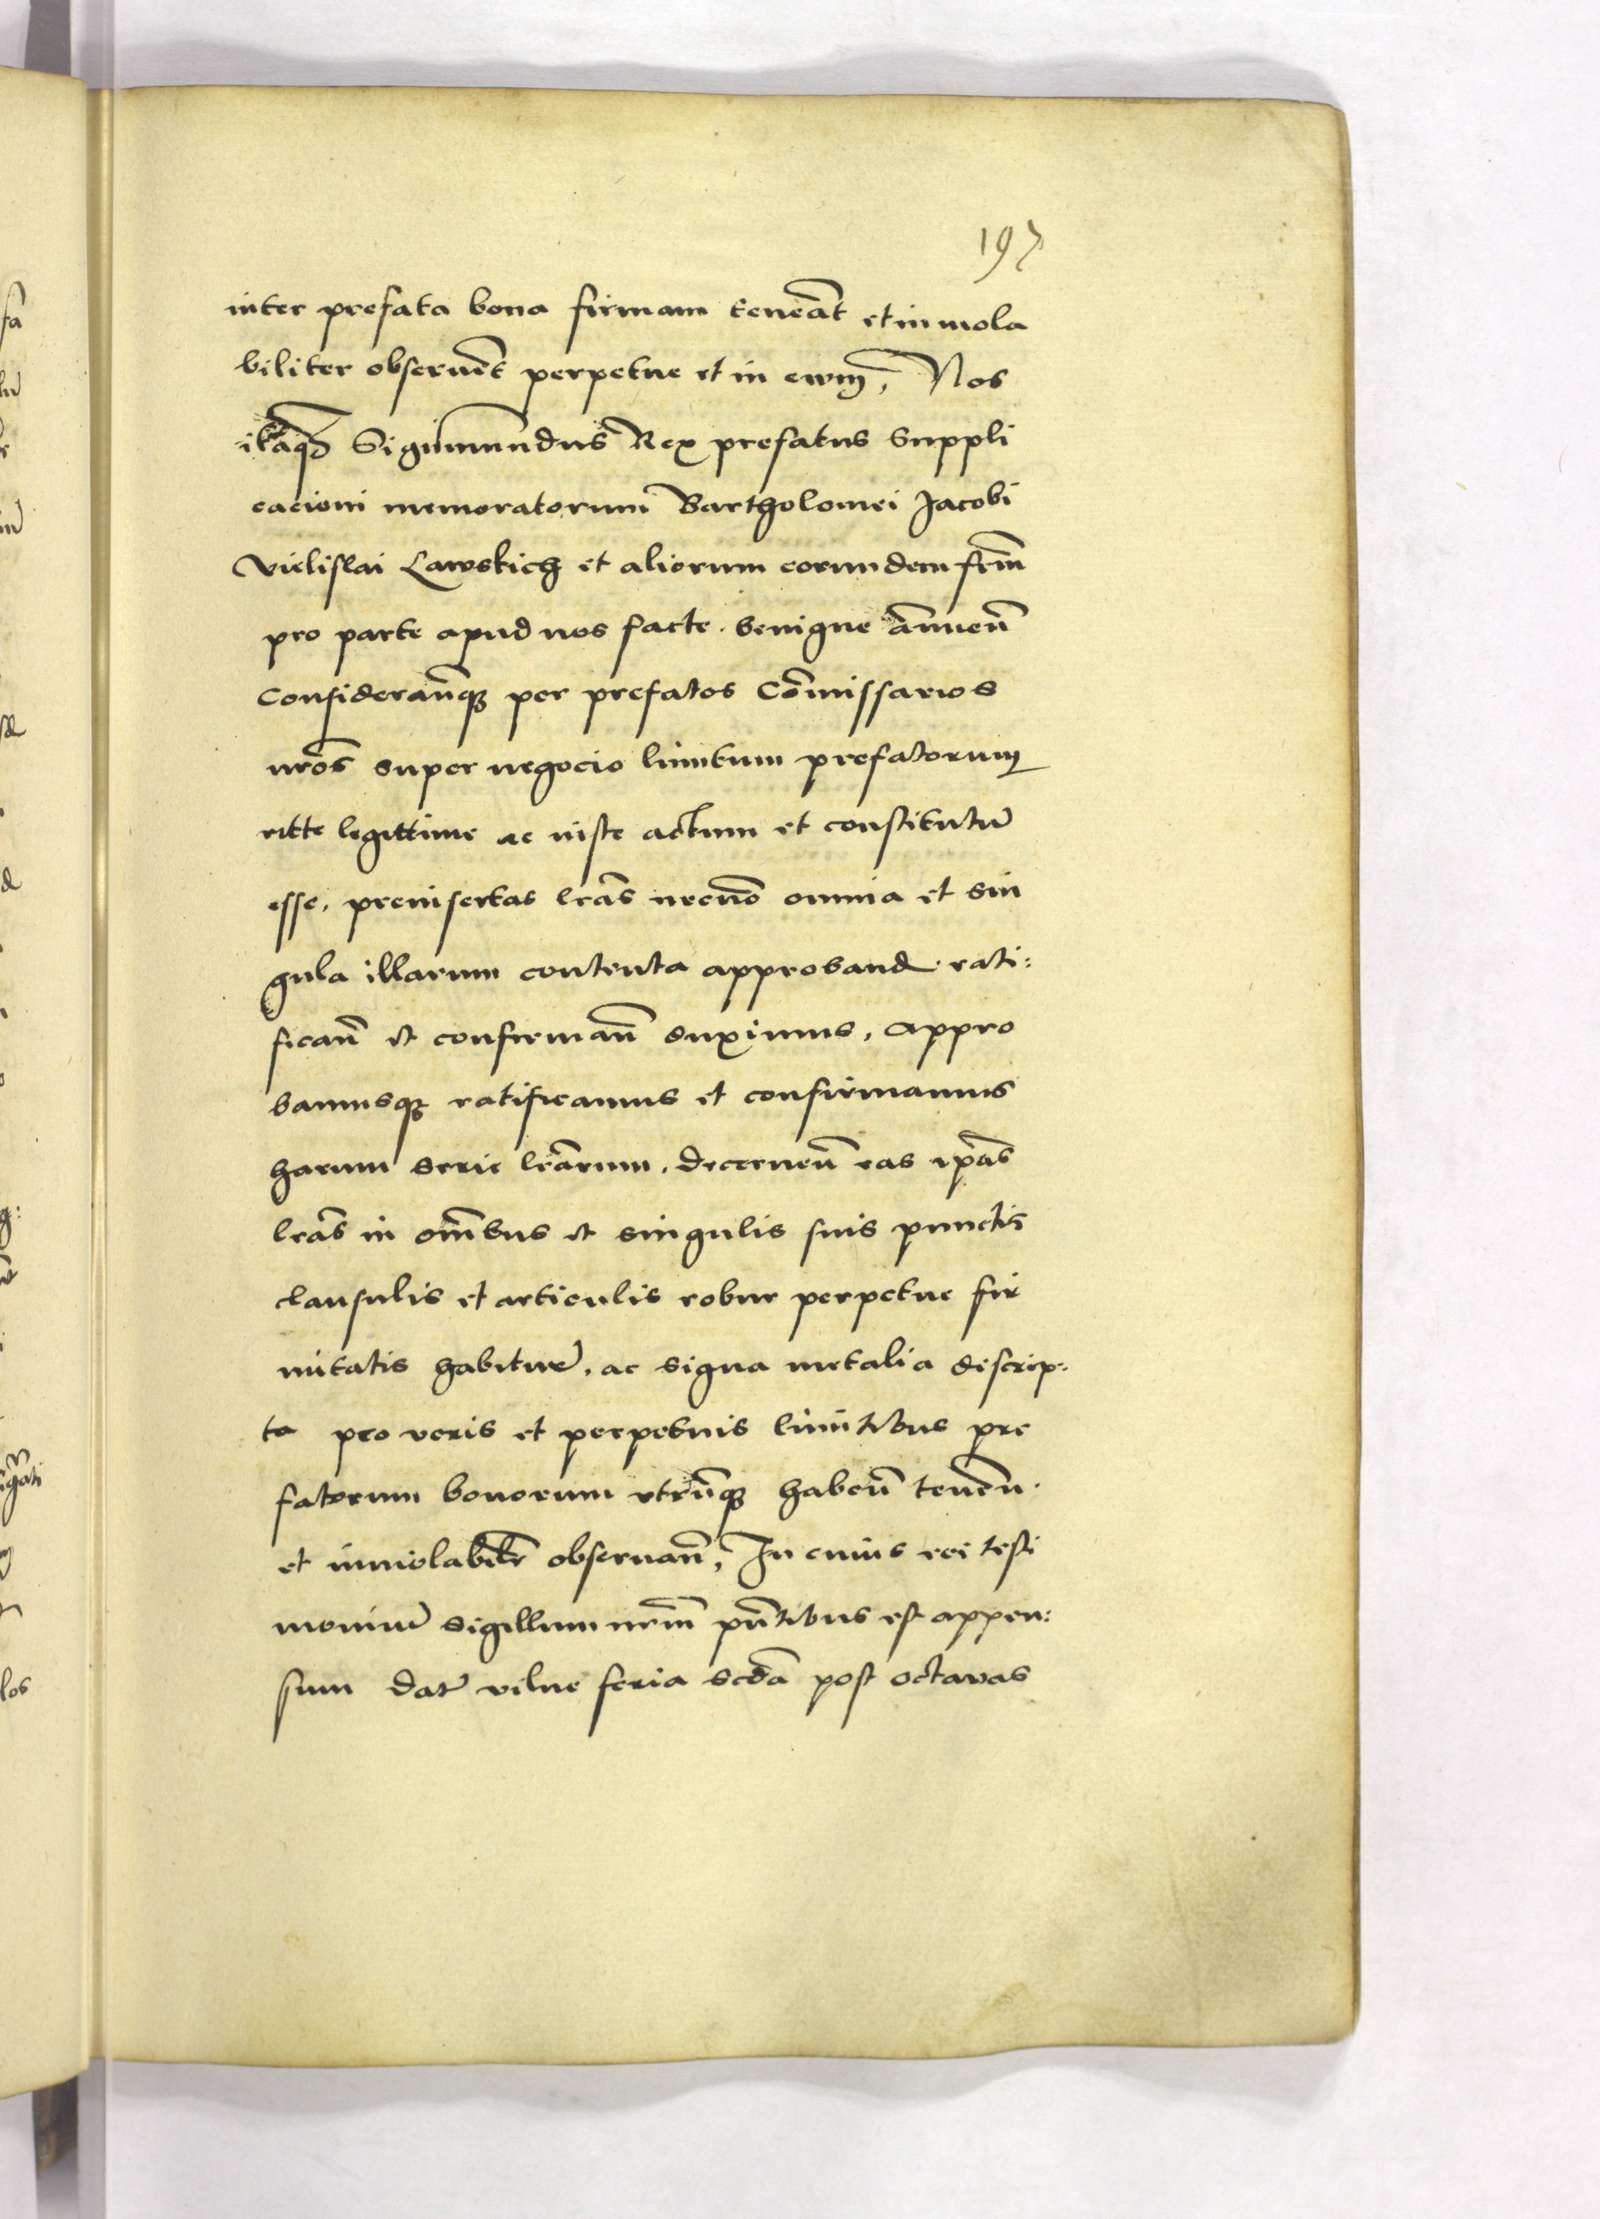 197
inter prefata bona firmam teneāt et inviola
biliter obseruēt perpetue et in ewm̄, Nos
itaq3 Sigismundus Rex prefatus Suppli
cacioni memoratorum Bartholomei Jacobi
Vielislai Lawskich et aliorum eorundem frm̄
pro parte apud nos facte. benigne ānuen̄
Consideran̄q3 per prefatos Com̄issarios
nrōs super negocio limitum prefatorum
ritte legittime ac iuste actum et constitutū
esse, preinsertas lrās necnō omnia et sin
gula illarum contenta approband. rati:
fican̄ et confirman̄ duximus, appro
bamusq3 ratificamus et confirmamus
harum serie lrārum. decernen̄ eas ip̄as
lrās in om̄bus et singulis suis punctis
clausulis et articulis robur perpetue fir
mitatis habiturē. ac signa metalia descrip:
ta pro veris et perpetuis limitibus pre
fatorum bonorum vtrūnq3 haben̄ tenēn.
et inuiolabilr̄ obseruan̄, In cuius rei testi
monium̄ sigillum nrm̄ pn̄tibus est appen:
sum dat̄ vilne feria scdā post octauas
fā
los